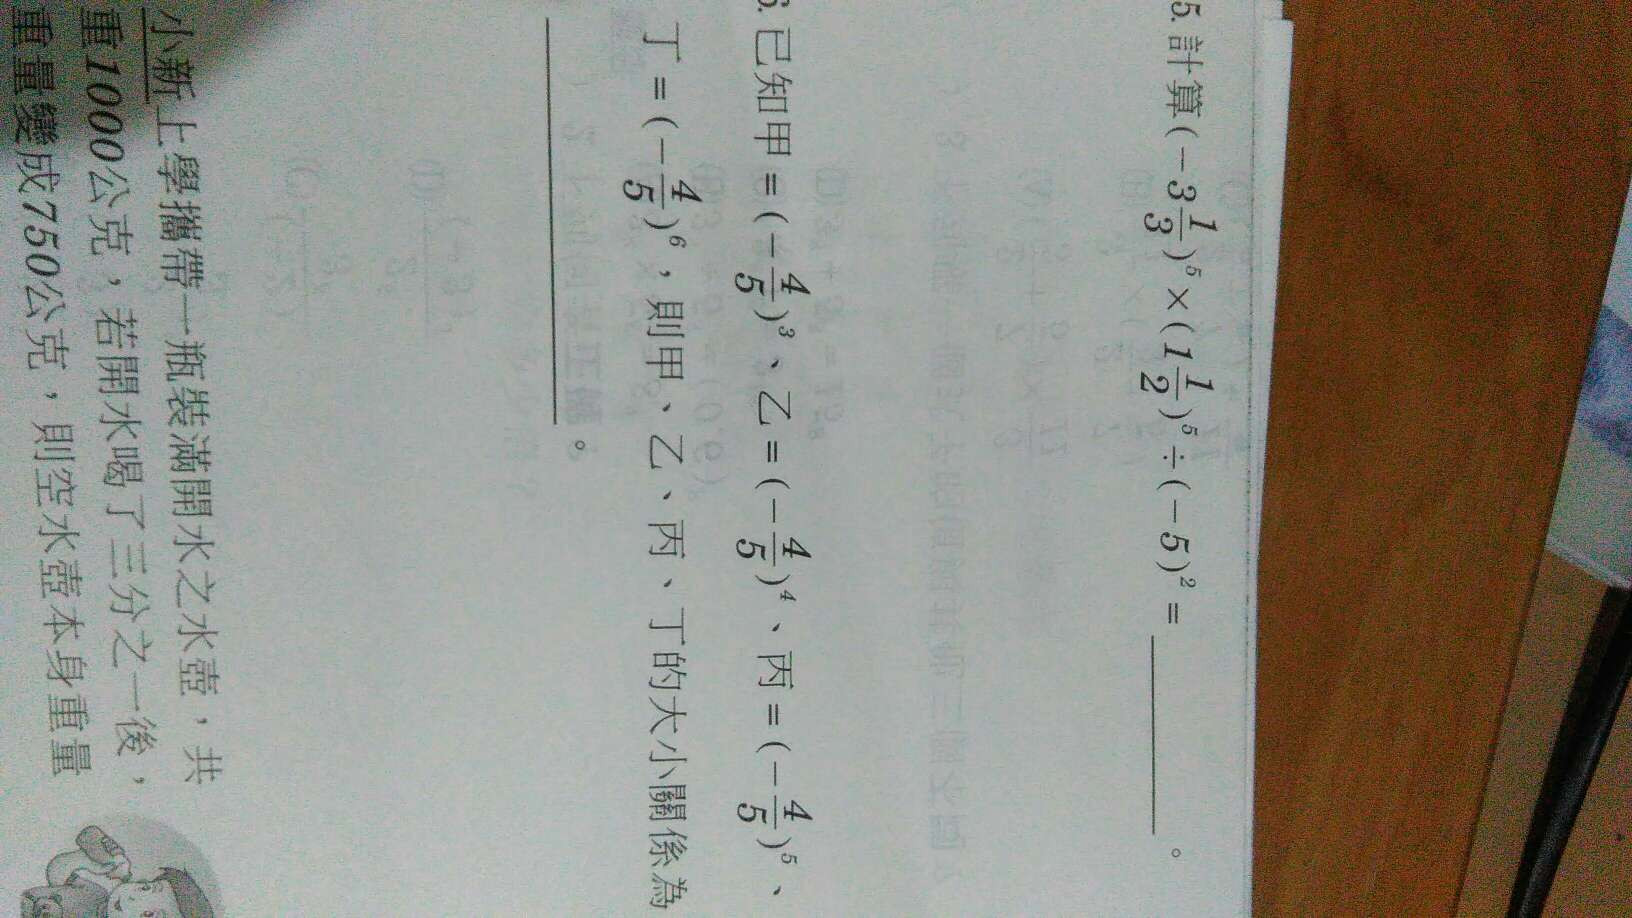 5. 計算(-3\frac{1}{3})⁵×(1\frac{1}{2})⁵÷(-5)²=________。
6. 已知甲=(-\frac{4}{5})³、乙=(-\frac{4}{5})⁴、丙=(-\frac{4}{5})⁵、
丁=(-\frac{4}{5})⁶，則甲、乙、丙、丁的大小關係為
________。
小新上學攜帶一瓶裝滿開水之水壺，共
重1000公克，若開水喝了三分之一後，
重量變成750公克，則空水壺本身重量